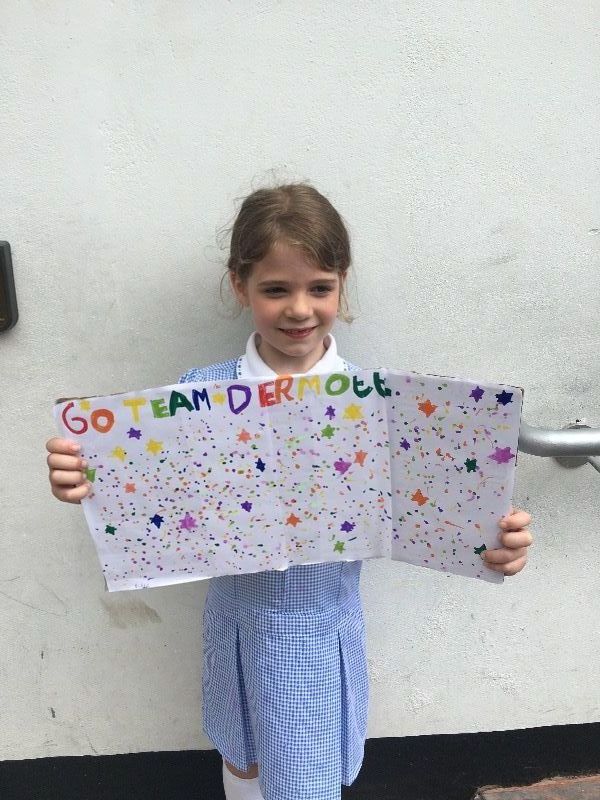 GO TEAM DERMOtt